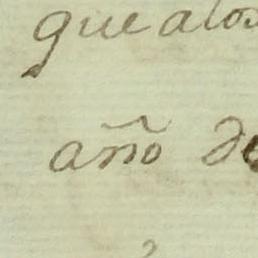 que alos
año de